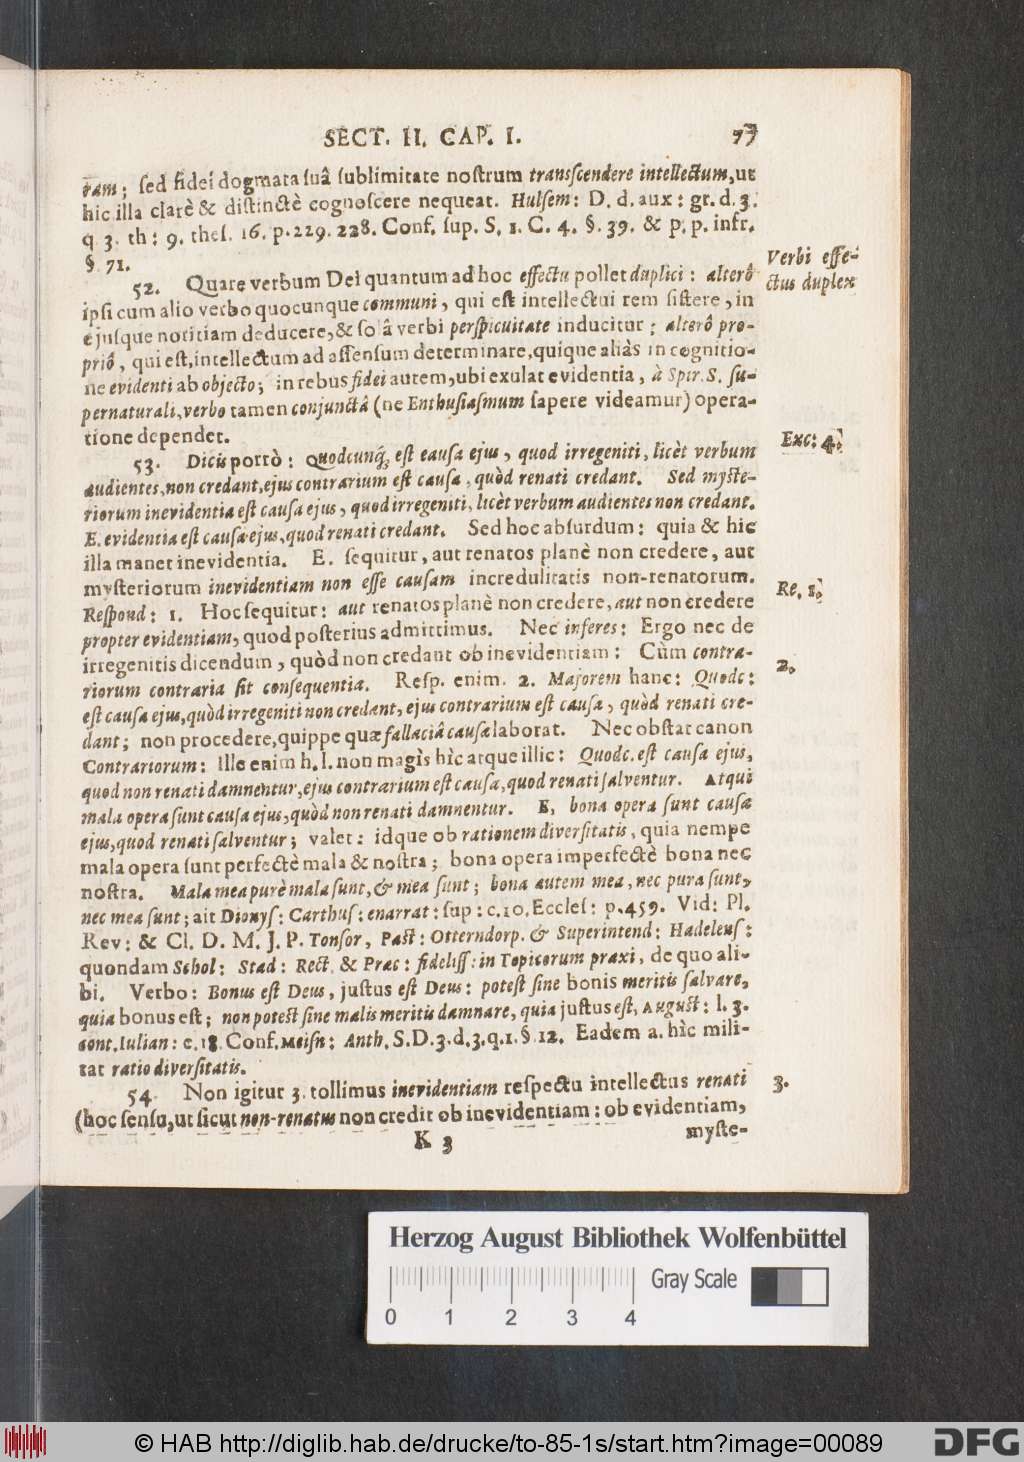 SECT. II. CAP. I. 77
ram; ſed fidei dogmata ſuâ ſublimitate noſtrum tranſcendere intellectum, ut
hic illa clarè & diſtinctè cognoſcere nequeat. Hulſem: D. d. aux: gr. d. 3.
q 3. th: 9. theſ. 16. p. 229. 228. Conf. ſup. S. 1. C. 4. §. 39. & p. p. infr.
§. 71.
Verbi effe-
ctus duplex
52. Quare verbum Dei quantum ad hoc effectu pollet duplici: alterô
ipſi cum alio verbo quocunque communi, qui eſt intellectui rem ſiſtere, in
ejuſque notitiam deducere, & ſolâ verbi perſpicuitate inducitur; alterô pro-
priô, qui eſt, intellectum ad aſſenſum determinare, quique aliàs in cognitio-
ne evidenti ab objecto; in rebus fidei autem, ubi exulat evidentia, à Spir. S. ſu-
pernaturali, verbo tamen conjunctâ (ne Enthuſiaſmum ſapere videamur) opera-
tione dependet.
Exc: 4.
53. Dicis porrò: Quodcunq́; eſt cauſa ejus, quod irregeniti, licèt verbum
audientes, non credant, ejus contrarium eſt cauſa, quòd renati credant. Sed myſte-
riorum inevidentia eſt cauſa ejus, quod irregeniti, licèt verbum audientes non credant.
E. evidentia eſt cauſa ejus, quod renati credant. Sed hoc abſurdum: quia & hic
illa manet inevidentia. E. ſequitur, aut renatos planè non credere, aut
myſteriorum inevidentiam non eſſe cauſam incredulitatis non-renatorum.
Re. 1.
Reſpond: 1. Hoc ſequitur: aut renatos planè non credere, aut non credere
propter evidentiam, quod poſterius admittimus. Nec inferes: Ergo nec de
irregenitis dicendum, quòd non credant ob inevidentiam: Cùm contra-
2.
riorum contraria ſit conſequentia. Reſp. enim. 2. Majorem hanc: Quodc:
eſt cauſa ejus, quòd irregeniti non credant, ejus contrarium eſt cauſa, quòd renati cre-
dant; non procedere, quippe quæ fallaciâ cauſæ laborat. Nec obſtat canon
Contrariorum: Ille enim h. l. non magìs hîc atque illic: Quodc. eſt cauſa ejus,
quod non renati damnentur, ejus contrarium eſt cauſa, quod renati ſalventur. Atqui
mala opera ſunt cauſa ejus, quòd non renati damnentur. E, bona opera ſunt cauſa
ejus, quod renati ſalventur; valet: idque ob rationem diverſitatis, quia nempe
mala opera ſunt perfectè mala & noſtra; bona opera imperfectè bona nec
noſtra. Mala mea purè mala ſunt, & mea ſunt; bona autem mea, nec pura ſunt,
nec mea ſunt; ait Dionyſ: Carthuſ: enarrat: ſup: c. 10. Eccleſ: p. 459. Vid: Pl.
Rev: & Cl. D. M. J. P. Tonſor, Paſt: Otterndorp. & Superintend: Hadelenſ:
quondam Schol: Stad: Rect. & Præc: fideliſſ: in Topicorum praxi, de quo ali-
bi. Verbo: Bonus eſt Deus, juſtus eſt Deus: poteſt ſine bonis meritis ſalvare,
quia bonus eſt; non poteſt ſine malis meritis damnare, quia juſtus eſt, Auguſt: l. 3.
cont. Iulian: c. 18. Conf. Meiſn: Anth. S. D. 3. d. 3. q. 1. §. 12. Eadem a. hîc mili-
tat ratio diverſitatis.
3.
54. Non igitur 3. tollimus inevidentiam reſpectu intellectus renati
(hoc ſenſu, ut ſicut non-renatus non credit ob inevidentiam: ob evidentiam,
K 3 myſte-
Herzog August Bibliothek Wolfenbüttel
Gray Scale
0 1 2 3 4
© HAB http://diglib.hab.de/drucke/to-85-1s/start.htm?image=00089
DFG